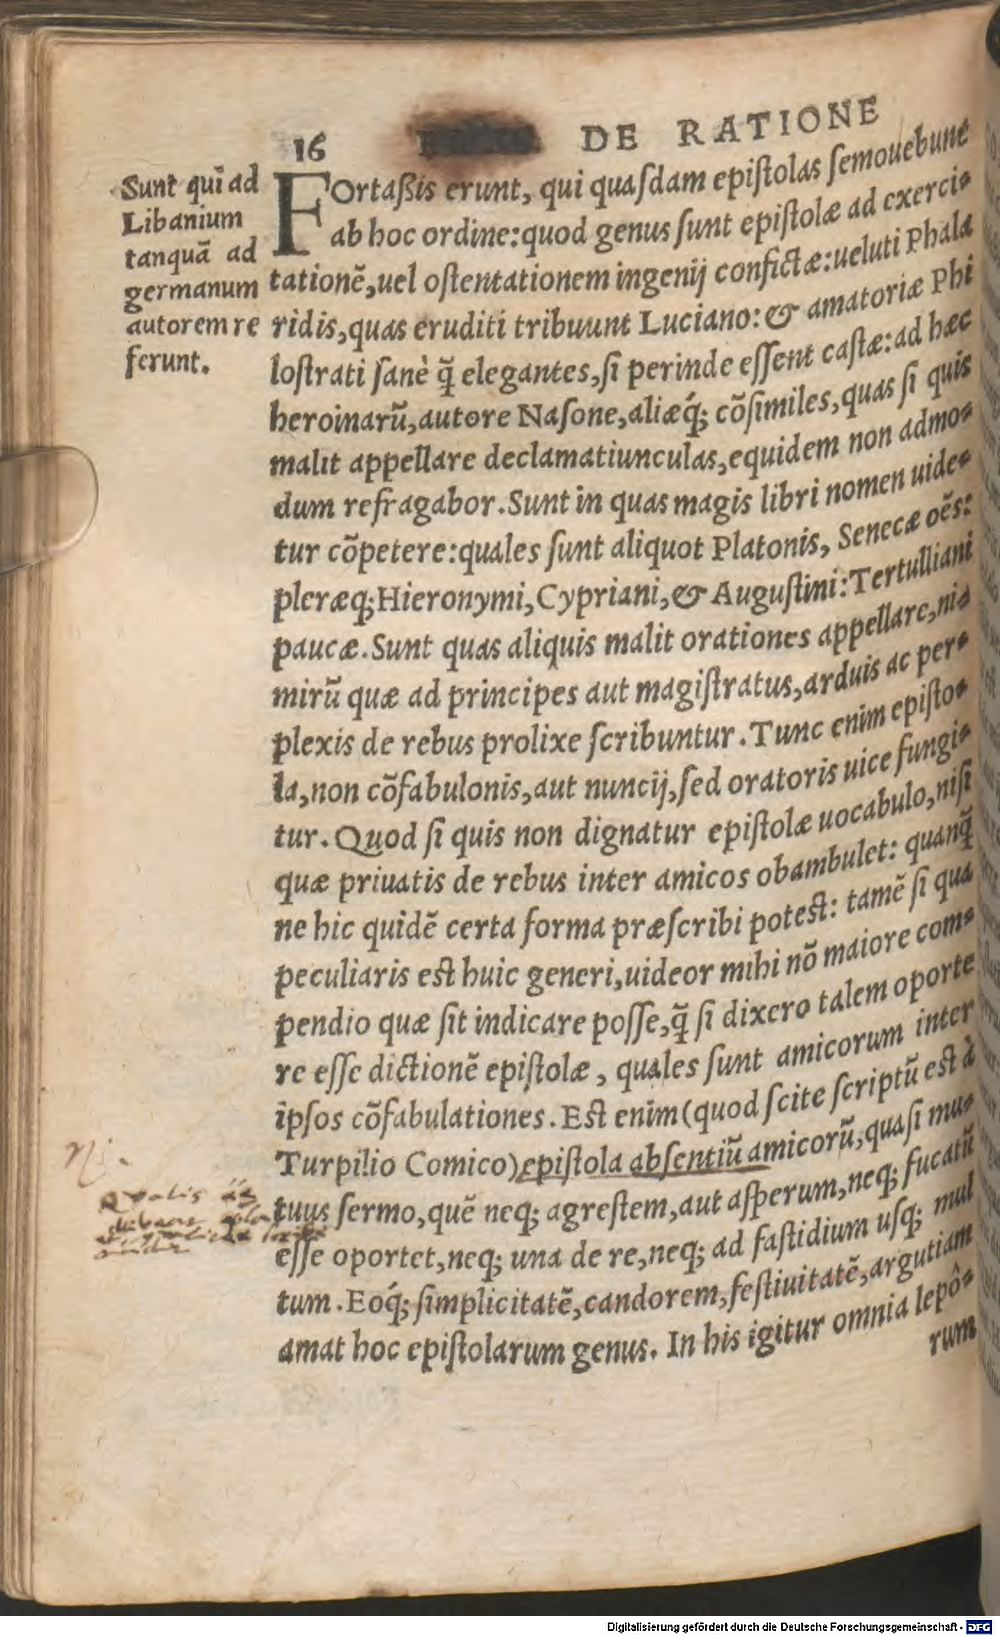 16 DE RATIONE
Sunt qui ad
Libanium
tanquā ad
germanum
autorem re
ferunt.
FOrtaßis erunt, qui quaſdam epiſtolas ſemouebunt
ab hoc ordine: quod genus ſunt epiſtolæ ad exerci-
tationē, uel oſtentationem ingenij confictæ: ueluti Phala
ridis, quas eruditi tribuunt Luciano: & amatoriæ Phi
loſtrati ſanè q̃ elegantes, ſi perinde eſſent caſtæ: ad hæc
heroinarũ, autore Naſone, aliæq́; cõſimiles, quas ſi quis
malit appellare declamatiunculas, equidem non admo-
dum refragabor. Sunt in quas magis libri nomen uide-
tur cõpetere: quales ſunt aliquot Platonis, Senecæ oẽs:
pleræq; Hieronymi, Cypriani, & Auguſtini: Tertulliani
paucæ. Sunt quas aliquis malit orationes appellare, ni-
mirũ quæ ad principes aut magiſtratus, arduis ac per-
plexis de rebus prolixe ſcribuntur. Tunc enim epiſto-
la, non cõfabulonis, aut nuncij, ſed oratoris uice fungi-
tur. Quod ſi quis non dignatur epiſtolæ uocabulo, niſi
quæ priuatis de rebus inter amicos obambulet: quanq̃
ne hic quidē certa forma præſcribi poteſt: tamē ſi qua
peculiaris eſt huic generi, uideor mihi nõ maiore com-
pendio quæ ſit indicare poſſe, q̃ ſi dixero talem oporte
re eſſe dictionē epiſtolæ, quales ſunt amicorum inter
ipſos cõfabulationes. Eſt enim (quod ſcite ſcriptũ eſt à
Turpilio Comico) epiſtola abſentiũ amicorũ, quaſi mu-
tuus ſermo, quē neq; agreſtem, aut aſperum, neq; fucatũ
eſſe oportet, neq; una de re, neq; ad faſtidium uſq; mul
tum. Eoq́; ſimplicitatē, candorem, feſtiuitatē, argutiam
amat hoc epiſtolarum genus. In his igitur omnia lepô-
rum
Digitalisierung gefördert durch die Deutsche Forschungsgemeinschaft - DFG